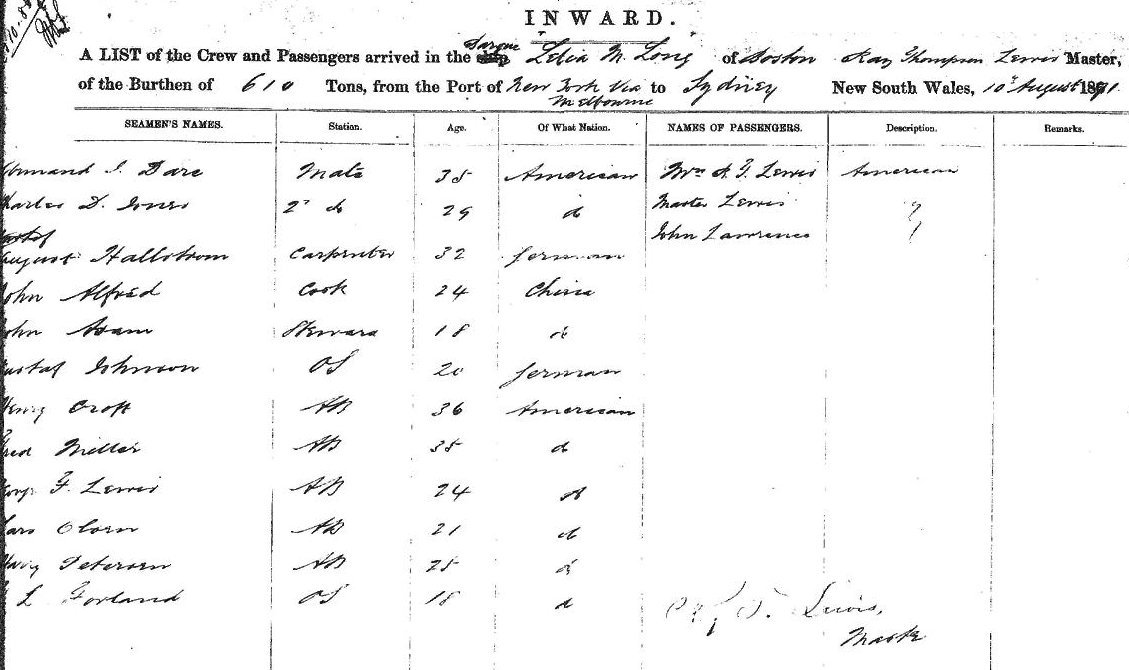 INWARD.
A LIST of the Crew and Passengers arrived in the Barque ship "Lelia M. Long of Boston Ray Thompson Lewis Master,
of the Burthen of 610 Tons, from the Port of New York Via Melbourne to Sydney New South Wales, 10th August 1891.
SEAMEN'S NAMES. Station. Age. Of What Nation. NAMES OF PASSENGERS. Description. Remarks.
Dare Mate 35 American Mrs Lewis American
Charles D. Jones 2d do 29 do Master Lewis "
John Lawrence "
August Hallstrom Carpenter 32 German
John Alfred Cook 24 China
John Steward 18 do
Gustaf Johnson OS 20 German
Henry Croft AB 36 American
Fred Miller AB 35 do
F. Lewis AB 24 do
AB 21 do
Harry Petersen AB 25 do
L OS 18 do
T. Lewis,
Master